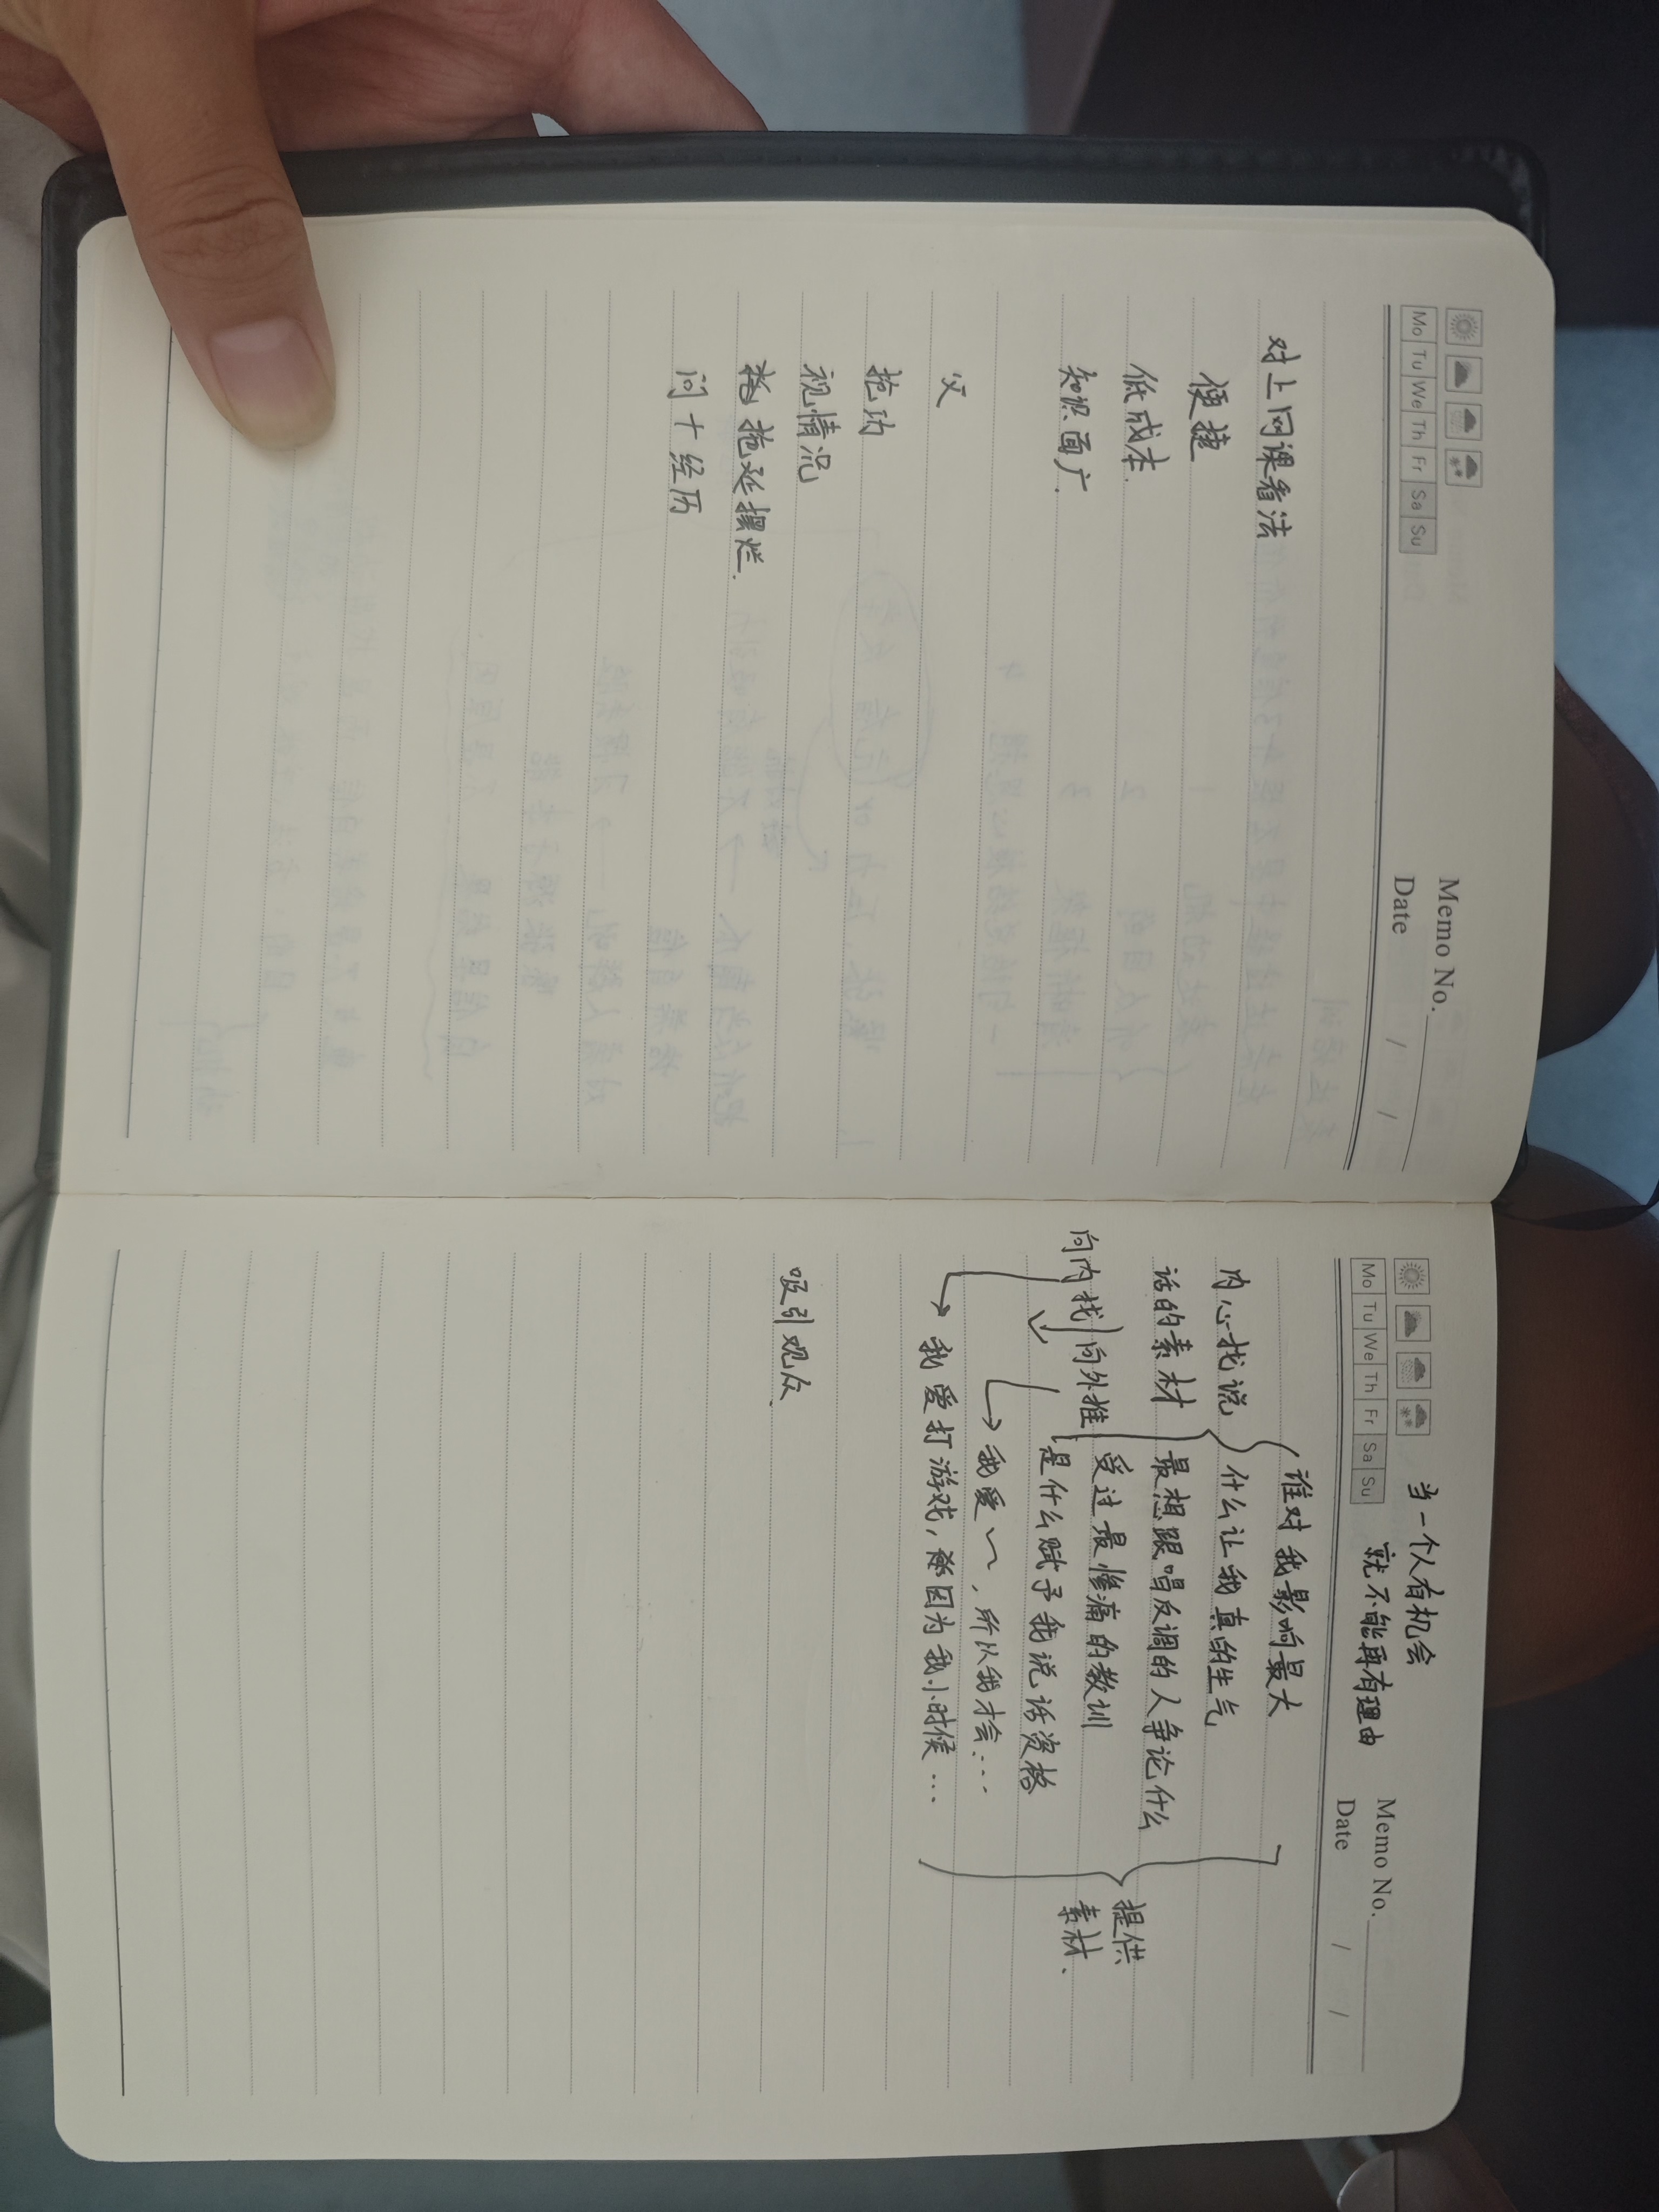 Memo No.
Mo Tu We Th Fr Sa Su
Date / /
对上网课看法
便捷
低成本.
知识面广.
父
拖功
视情况
拖延摆烂.
问十经历
当一个人有机会
就不能再有理由
Memo No.
Mo Tu We Th Fr Sa Su
Date / /
谁对我影响最大
内心找说 什么让我真的生气
话的素材 最想跟唱反调的人争论什么
向内找 向外推 受过最惨痛的教训
是什么赋予我说话资格
提供
素材.
我爱〜,所以我才会....
我爱打游戏,因为我小时候...
吸引观众.